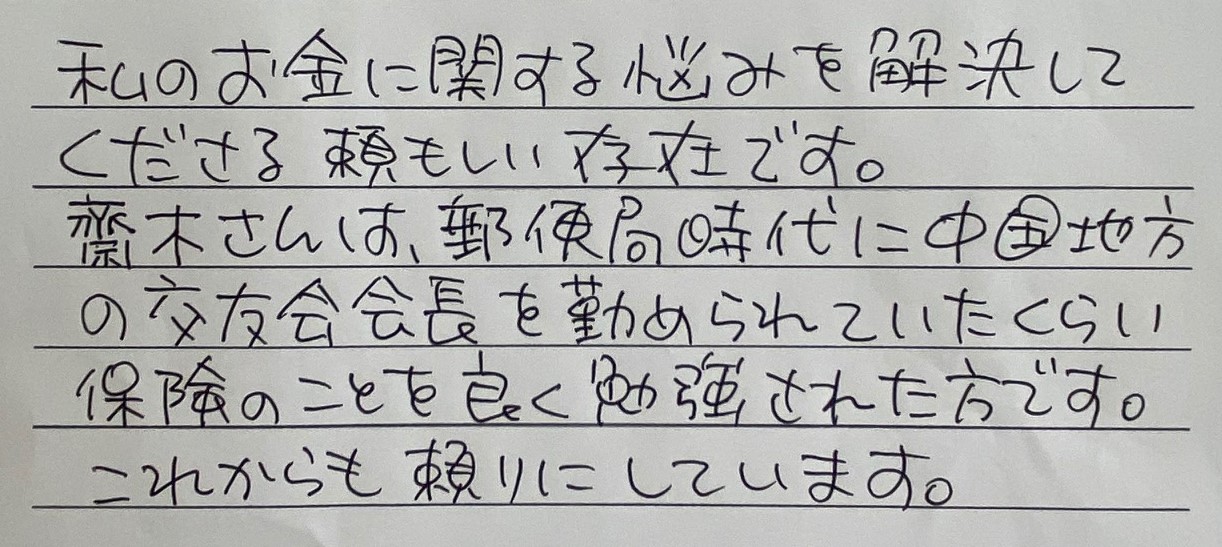 私のお金に関する悩みを解決して
くださる頼もしい存在です。
齋木さんは、郵便局時代に中国地方
の交友会会長を勤められていたくらい
保険のことを良く勉強された方です。
これからも頼りにしています。